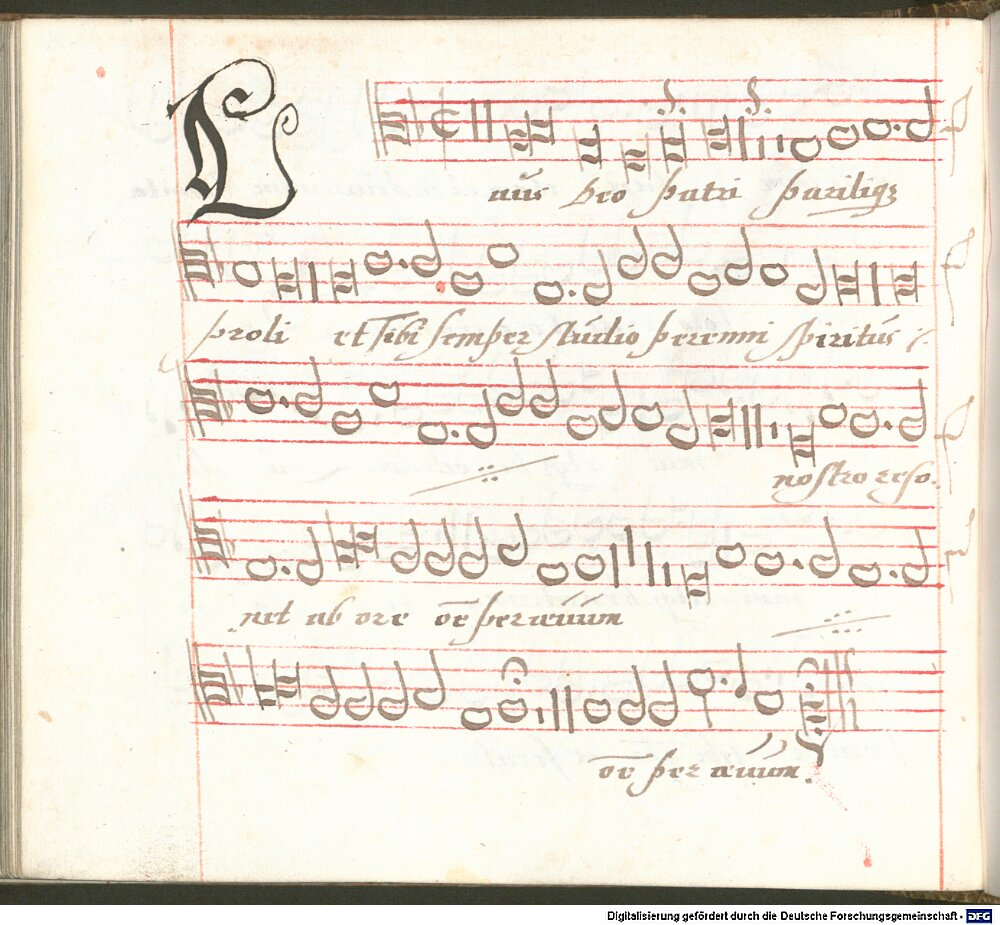 Laus pro patri pariliq3
proli et tibi semper studio perenni spiritus ij.
nostro reso.
net ab ore oē per æuum
oē per æuum.
Digitalisierung gefördert durch die Deutsche Forschungsgemeinschaft - DFG